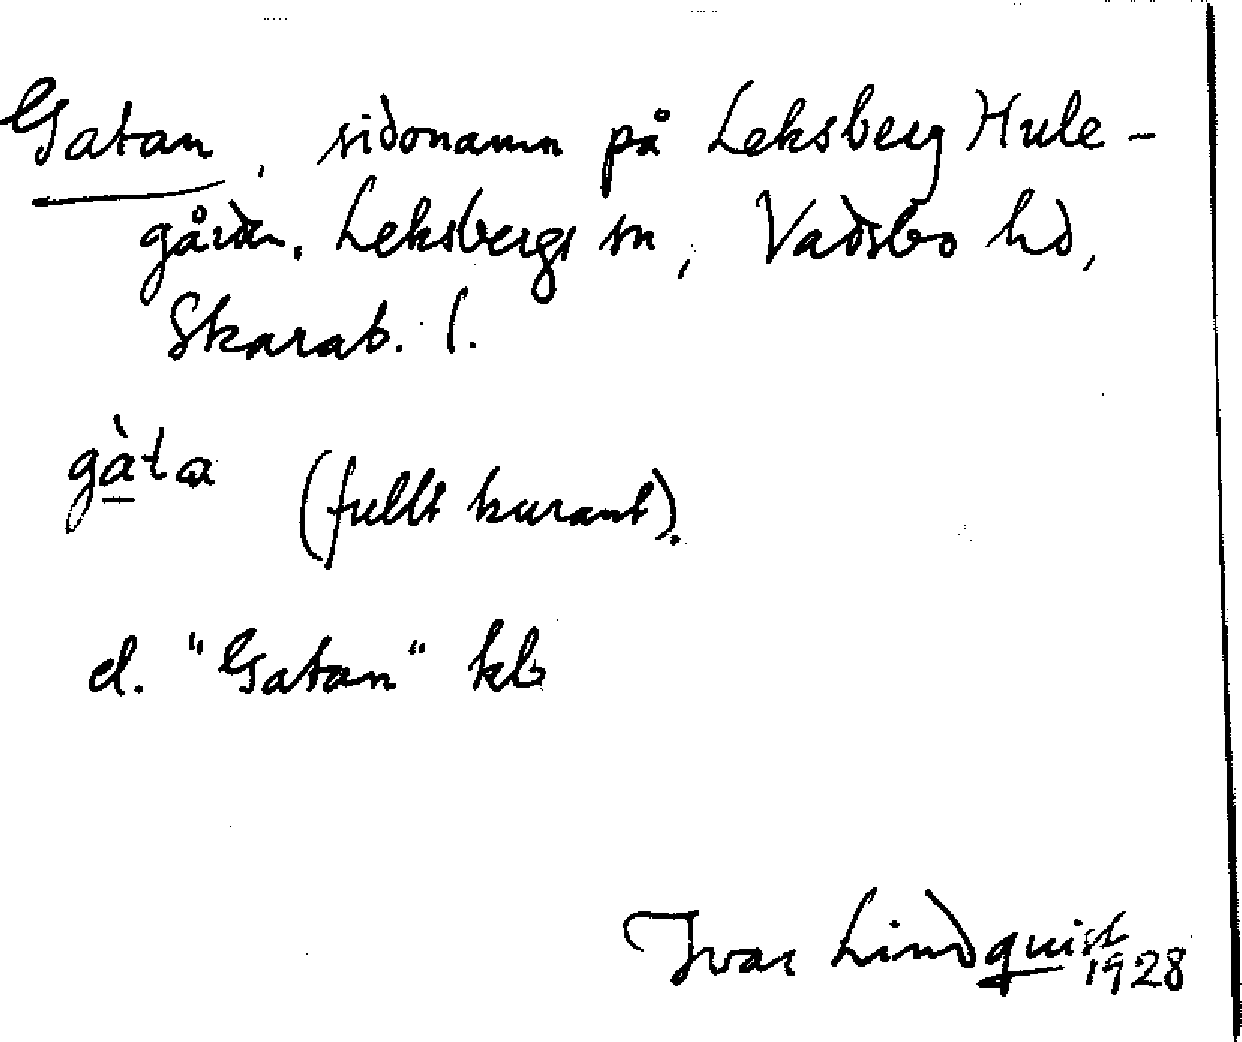 Gatan, sidonamn på Leksberg Hule-
gården, Leksbergs sn, Vadsbo hd,
Skarab. l.
gàta (fullt kurant).
d. "Gatan" kb
Ivar Lindquist
1928